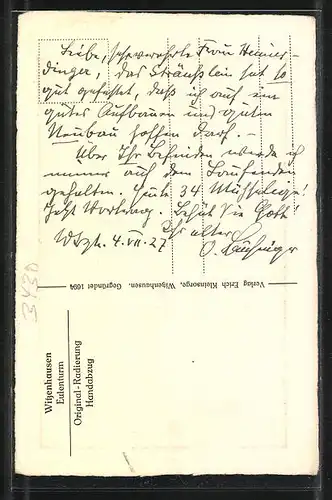 Liebe, sehr verehrte Frau Heiner-
dinger, das Sträußlein hat so
gut gehaftet, daß ich auf ein
gutes Aufbauen und guten
Neubau hoffen darf. –
Über Ihr Befinden werde ich
immer auf dem Laufenden
gehalten. Heute 34
Jetzt Vortrag. Behüt Sie Gott!
Ihr alter
Wtzh. 4. VII. 27 O.
Verlag Erich Kleinsorge, Witzenhausen. Gegründet 1694
Witzenhausen
Eulenturm
Original-Radierung
Handabzug
3430